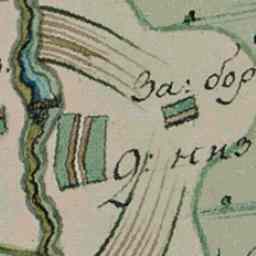 За: бор
д: низ